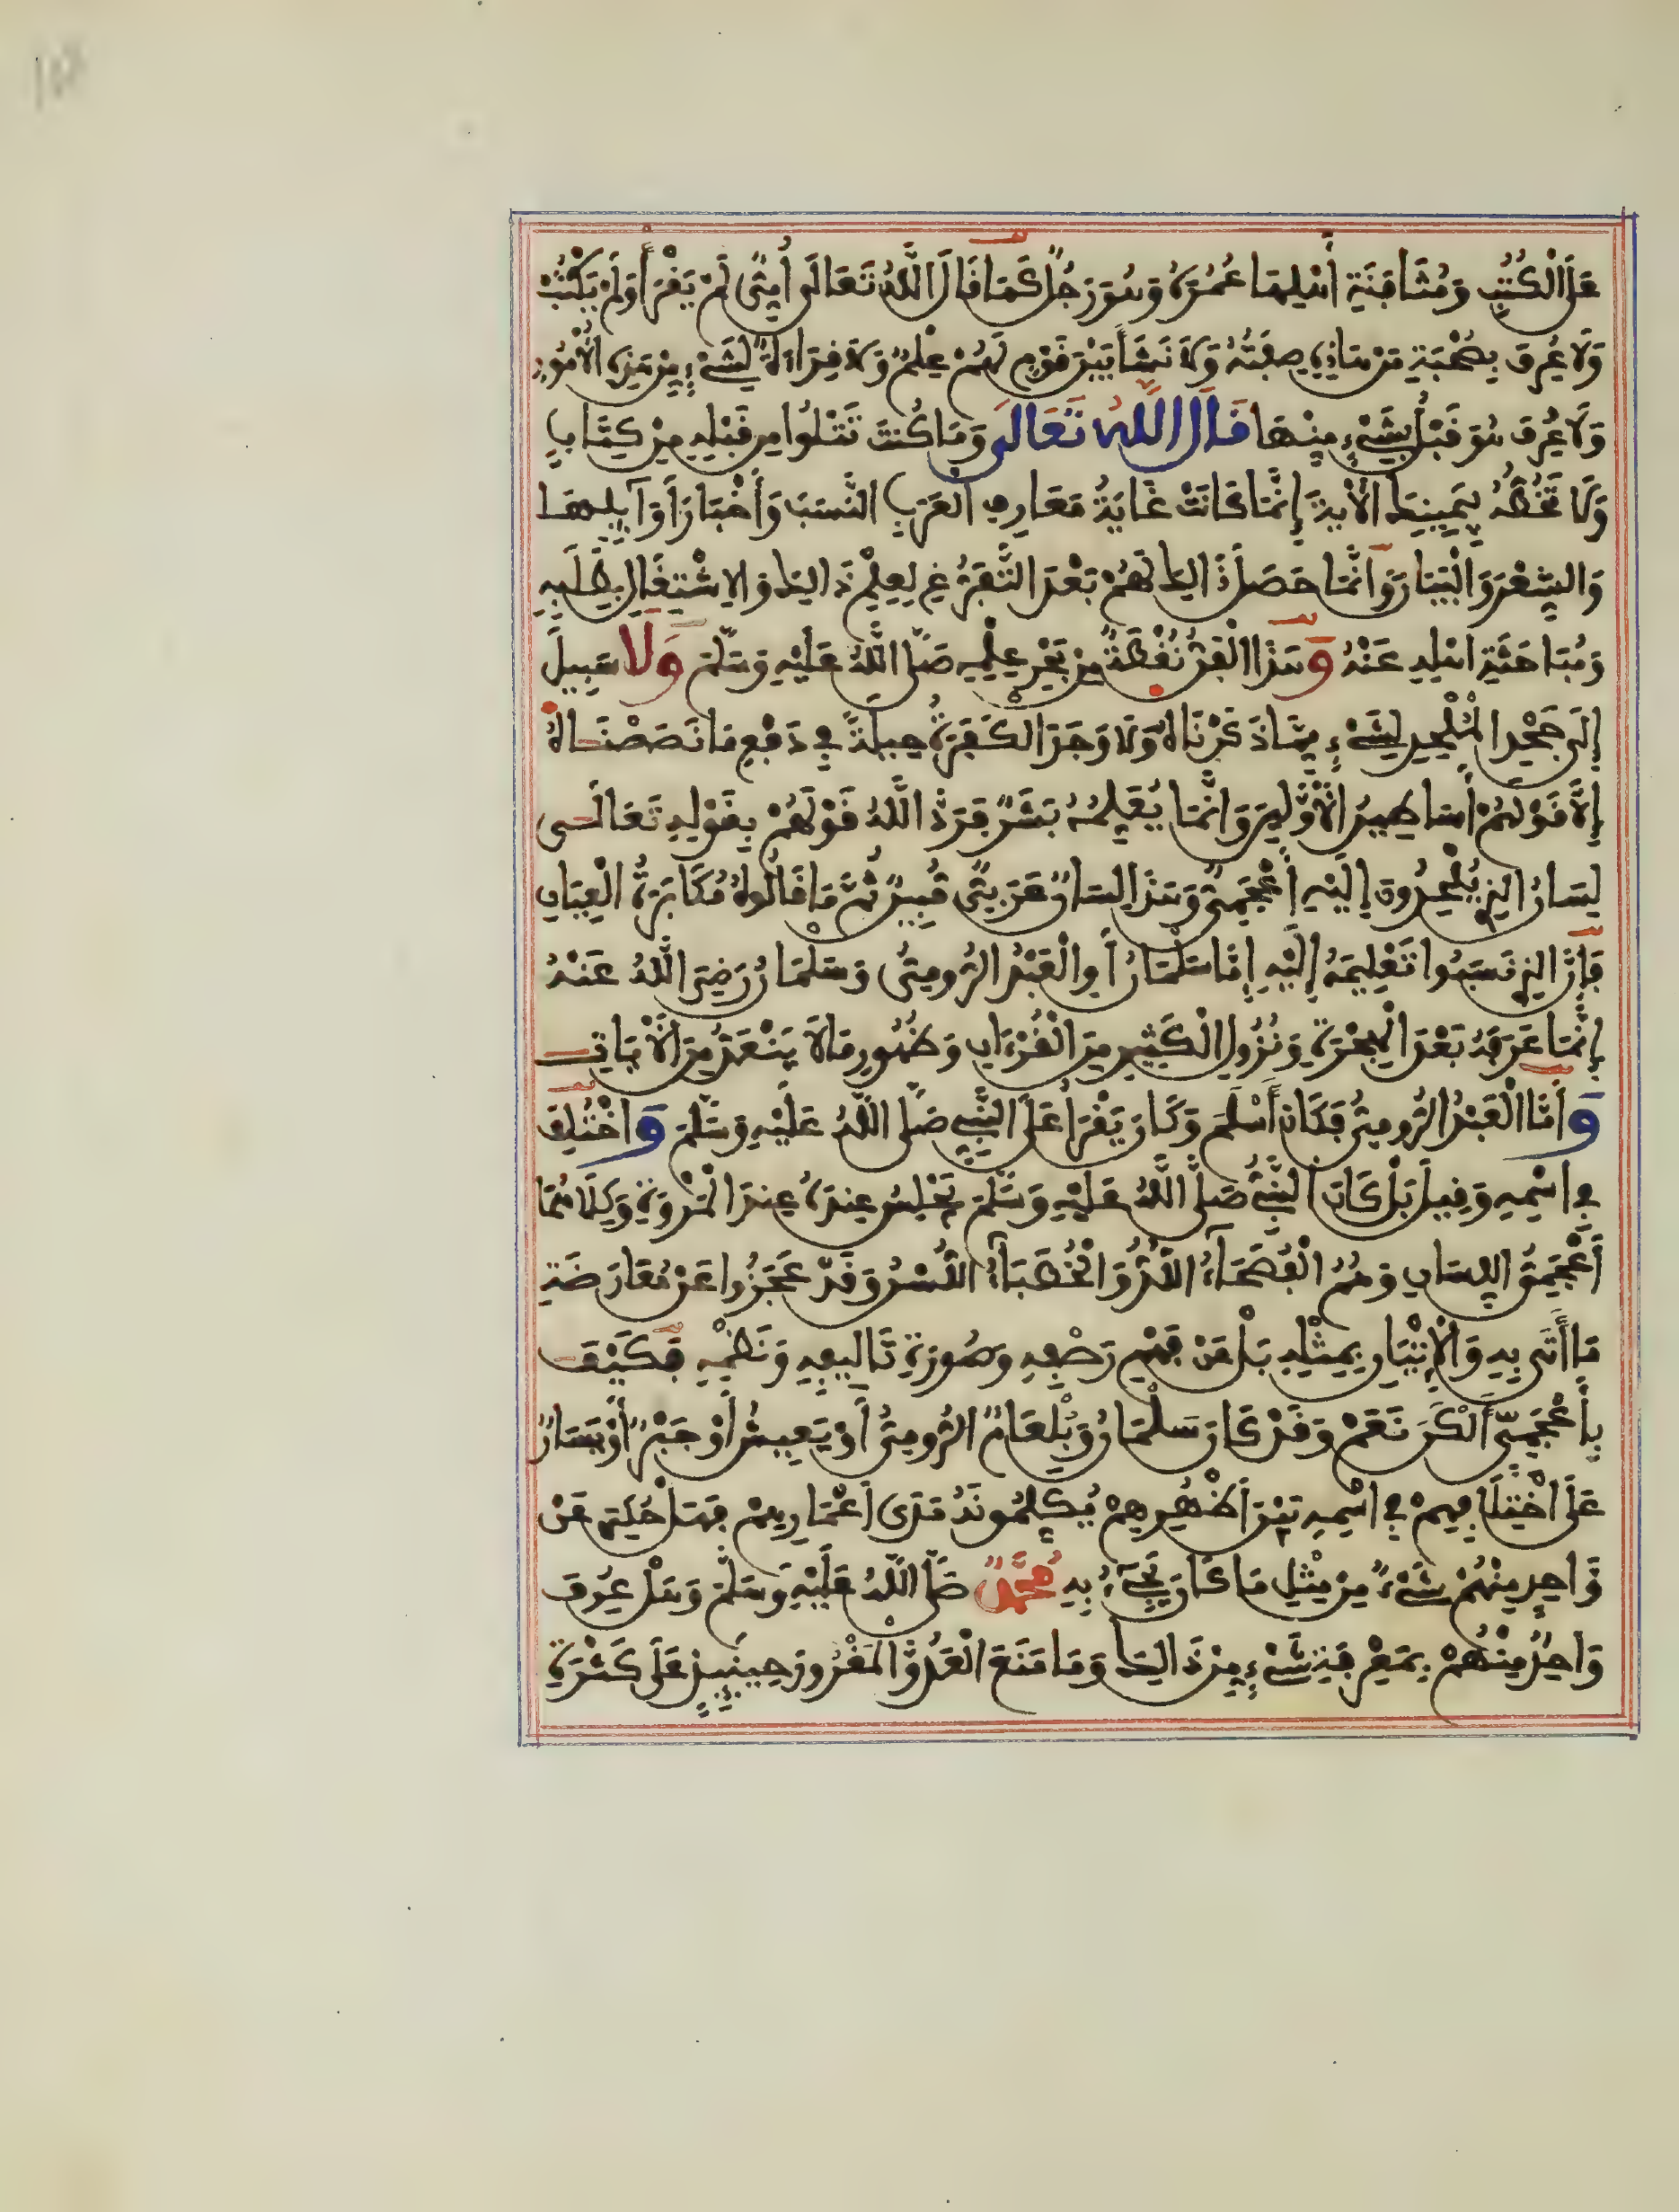 عَلَى الْكُتُبِ وَمُثَافَنَةِ أَهْلِهَا عُمُرَهُ وَهُوَ رَجُلٌ كَمَا قَالَ اللَّهُ تَعَالَى أُمِّيٌّ لَمْ يَقْرَأْ وَلَمْ يَكْتُبْ
وَلَا عُرِفَ بِصُحْبَةِ مَنْ هَاذِهِ صِفَتُهُ وَلَا نَشَأَ بَيْنَ قَوْمٍ لَهُمْ عِلْمٌ وَلَا قِرَاءَةٌ لِشَيْءٍ مِنْ هَذِهِ الْأُمُورِ
وَلَا عُرِفَ هُوَ قَبْلُ بِشَيْءٍ مِنْهَا قَالَ اللَّهُ تَعَالَى وَمَا كُنْتَ تَتْلُوا مِن قَبْلِهِ مِنْ كِتَابٍ
وَلَا تَخُطُّهُ بِيَمِينِكَ الْأَيَةَ إِنَّمَا كَانَتْ غَايَةُ مَعَارِفِ الْعَرَبِ النَّسَبَ وَأَخْبَارَ أَوَائِلِهَا
وَالشِّعْرَ وَالْبَيَانَ وَإِنَّمَا حَصَلَ ذَالِكَ لَهُمْ بَعْدَ التَّفَرُّغِ لِعِلْمِ ذَالِكَ وَالِاشْتِغَالِ بِطَلَبِهِ
وَمُبَاحَثَةِ اهْلِهِ عَنْهُ وَهَذَا الْفَنُّ نُقْطَةٌ مِنْ بَحْرِ عِلْمِهِ صَلَّى اللَّهُ عَلَيْهِ وَسَلَّمَ وَلَا سَبِيلَ
إِلَى جَحْدِ الْمُلْحِدِ لِشَيْءٍ مِمَّا ذَكَرْنَاهُ وَلَا وَجَدَ الْكَفَرَةُ حِيلَةً فِي دَفْعِ مَا نَصَصْنَاهُ
إِلَّا قَوْلَهُمْ أَسَاطِيرُ الْأَوَّلِينَ وَإِنَّمَا يُعَلِّمُهُ بَشَرٌ فَرَدَّ اللَّهُ قَوْلَهُمْ بِقَوْلِهِ تَعَالَى
لِسَانُ الذِي يُلْحِدُونَ إِلَيْهِ أَعْجَمِيٌّ وَهَذَا لِسَانٌ عَرَبِيٌّ مُبِينٌ ثُمَّ مَا قَالُوهُ مُكَابَرَةُ الْعِيَانِ
فَإِنَّ الذِي نَسَبُوا تَعْلِيمَهُ إِلَيْهِ إِمَّا سَلْمَانُ أَوِ الْعَبْدُ الرُّومِيُّ وَسَلْمَانُ رَضِيَ اللَّهُ عَنْهُ
إِنَّمَا عَرَفَهُ بَعْدَ الْهِجْرَةِ وَنُزُولِ الْكَثِيرِ مِنَ الْقُرْءَانِ وَظُهُورِ مَا لَا يَنْعَدُّ مِنَ الْأَيَاتِ
وَأَمَّا الْعَبْدُ الرُّومِيُّ فَكَانَ أَسْلَمَ وَكَانَ يَقْرَأُ عَلَى النَّبِيِّ صَلَّى اللَّهُ عَلَيْهِ وَسَلَّمَ وَاخْتُلِفَ
فِي اسْمِهِ وَقِيلَ بَلْ كَانَ النَّبِيُّ صَلَّى اللَّهُ عَلَيْهِ وَسَلَّمَ يَجْلِسُ عِنْدَهُ عِنْدَ الْمَرْوَةِ وَكِلَاهُمَا
أَعْجَمِيُّ اللِّسَانِ وَهُمُ الْفُصَحَاءُ اللُّدُّ وَالْخُطَبَاءُ اللُّسْنُ وَقَدْ عَجَزُوا عَنْ مُعَارَضَةِ
مَا أَتَى بِهِ وَالْإِتْيَانِ بِمِثْلِهِ بَلْ عَنْ فَهْمِ رَصْفِهِ وَصُورَةِ تَالِيفِهِ وَنَظْمِهِ فَكَيْفَ
بِأَعْجَمِيٍّ أَلْكَنَ نَعَمْ وَقَدْ كَانَ سَلْمَانُ وَبَلْعَامُ الرُّومِيُّ أَوْ يَعِيشُ أَوْ جَبْرٌ أَوْ يَسَارٌ
عَلَى اخْتِلَافِهِمْ فِي اسْمِهِ بَيْنَ أَظْهُرِهِمْ يُكَلِّمُونَهُ مَدَى أَعْمَارِهِمْ فَهَلْ حُكِيَ عَنْ
وَاحِدٍ مِنْهُمْ شَيْءٌ مِنْ مِثْلِ مَا كَانَ يَجِيءُ بِهِ مُحَمَّدٌ صَلَّى اللَّهُ عَلَيْهِ وَسَلَّمَ وَهَلْ عُرِفَ
وَاحِدٌ مِنْهُمْ بِمَعْرِفَةِ شَيْءٍ مِنْ ذَالِكَ وَمَا مَنَعَ الْعَدُوَّ الْمَغْرُورَ حِينَئِذٍ عَلَى كَثْرَةِ